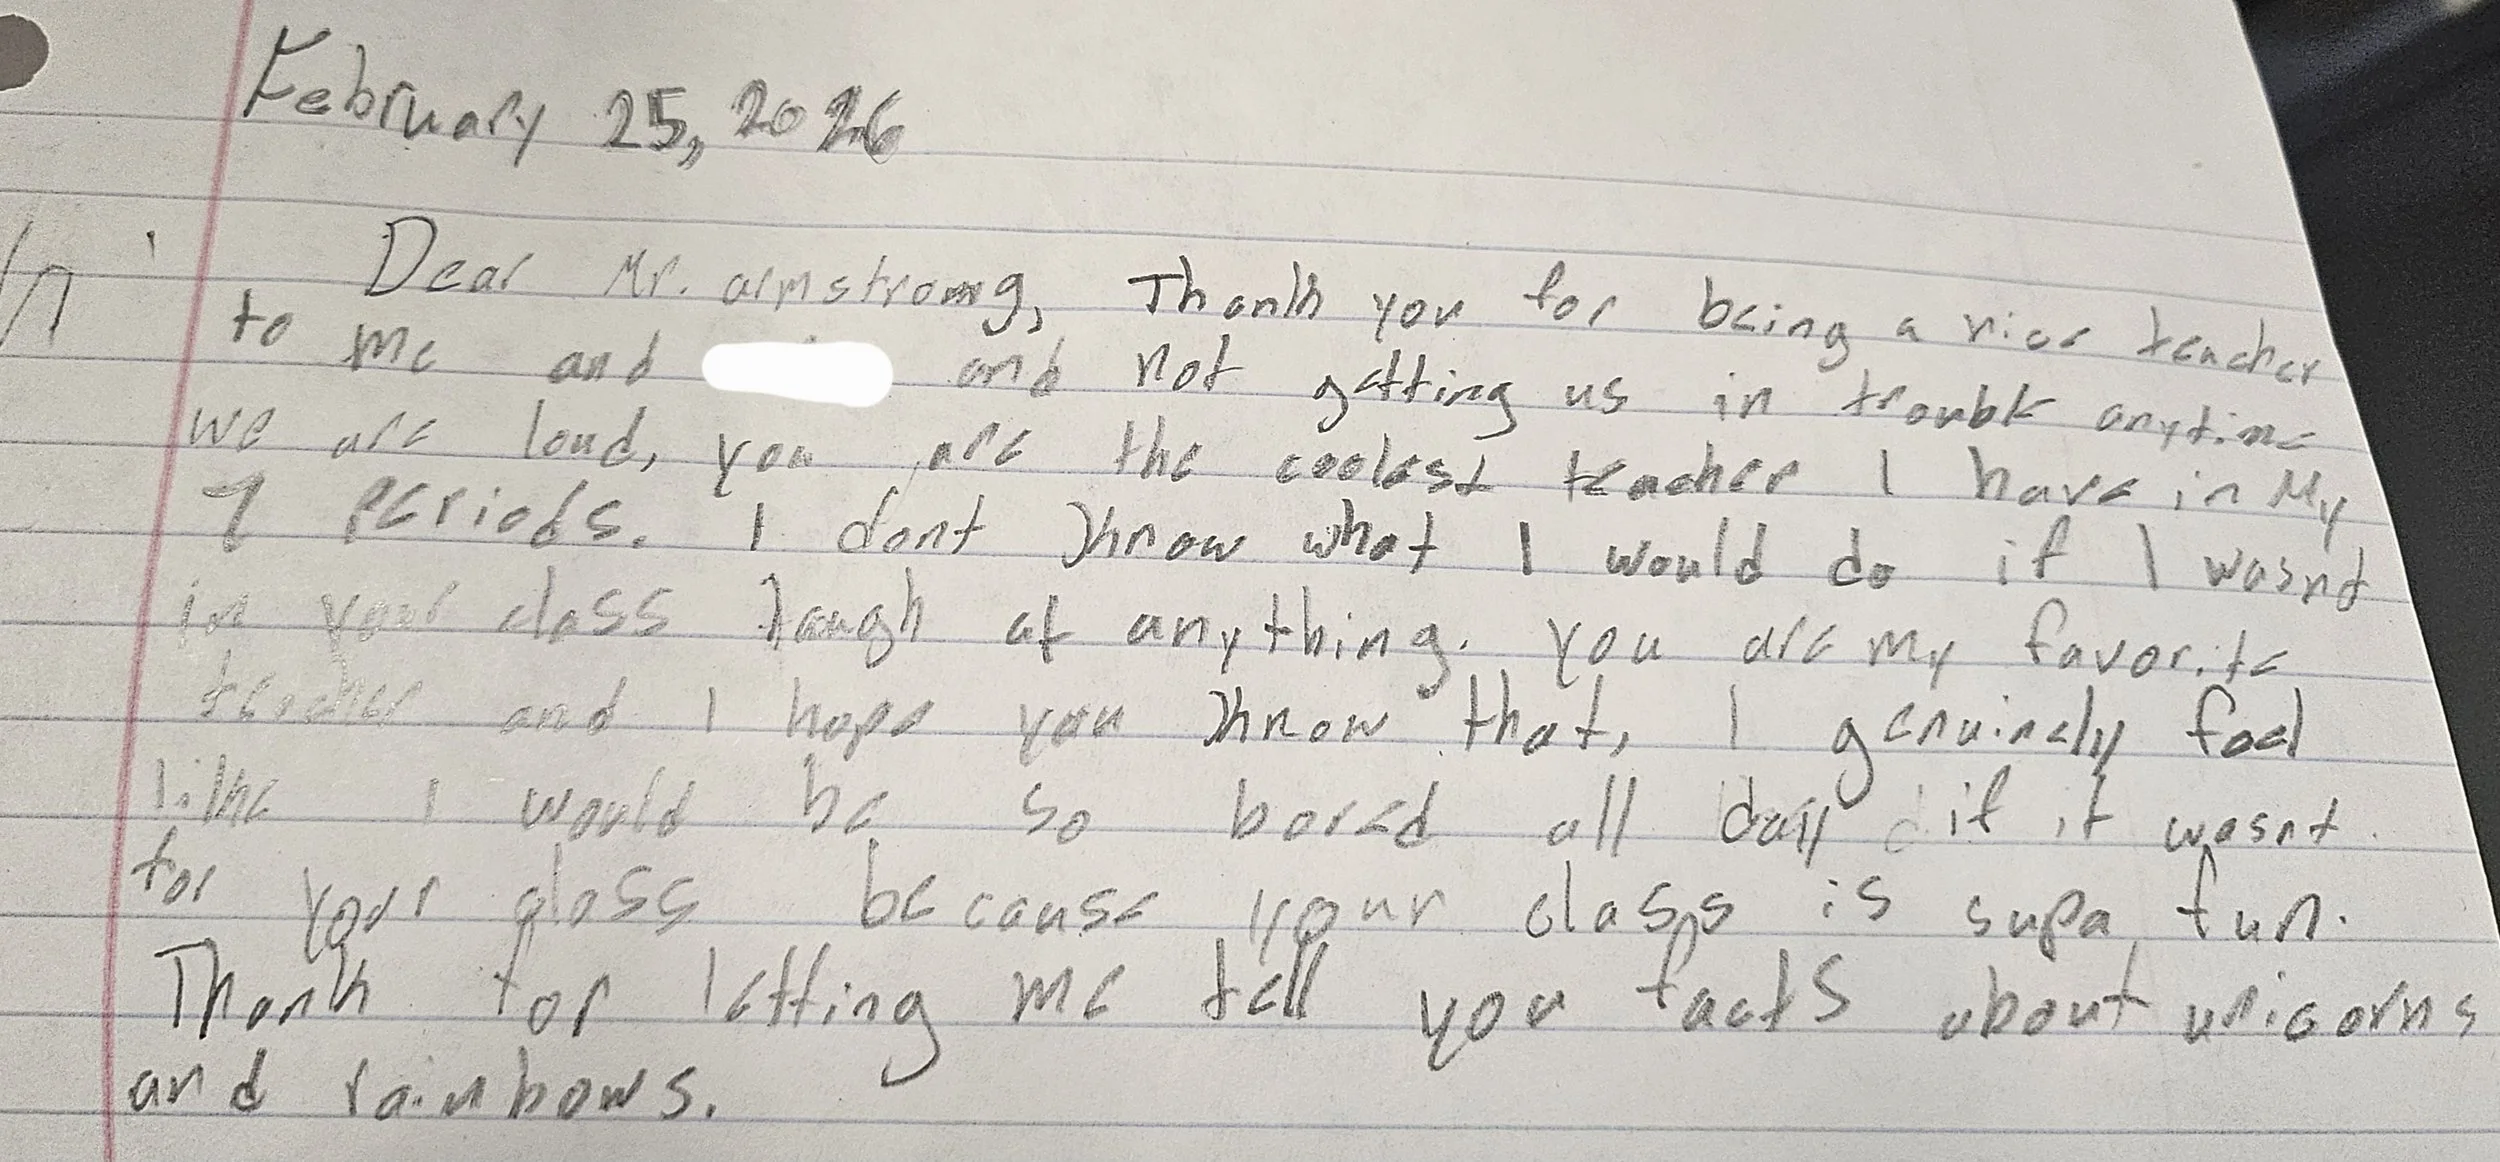 February 25, 2026
Dear Mr. armstrong, Thank you for being a nice teacher
to me and and not getting us in trouble anytime
we are loud, you are the coolest teacher I have in My
7 Periods. I dont know what I would do if I wasnt
in your class laugh at anything. You are my favorite
teacher and I hope you know that, I genuinely feel
like I would be so bored all day if it wasnt
for your class because your class is supa fun.
Thank for letting me tell you facts about unicorns
and rainbows.